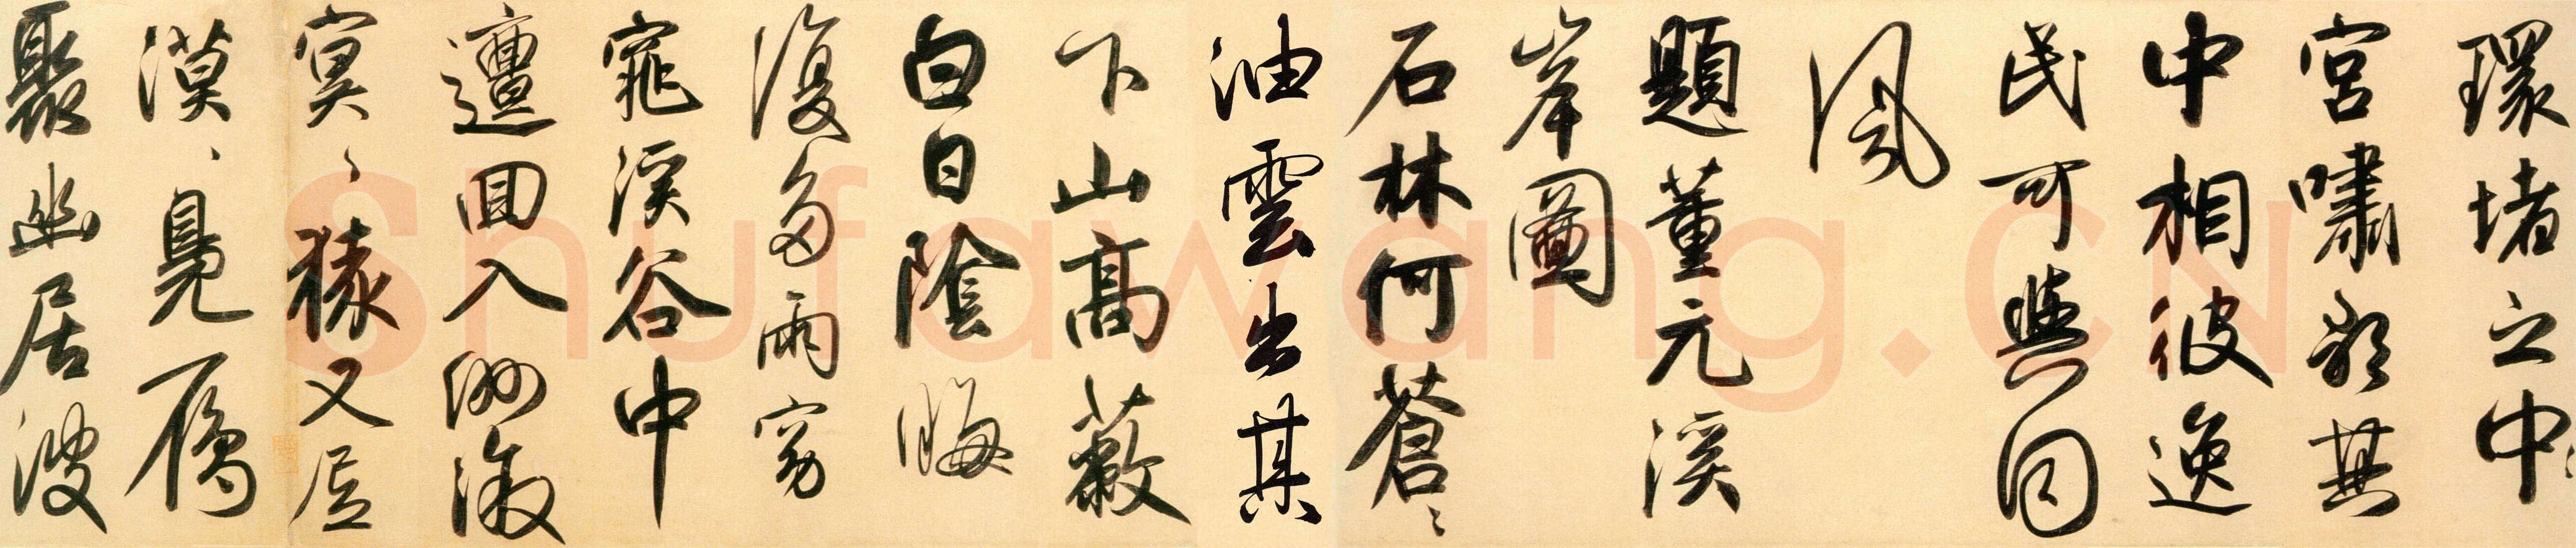 環堵之中
宮嘯歌其
中相彼逸
民可與同
風
題董元溪
岸圖
石林何蒼〻
油雲出其
下山高蔽
白日陰晦
復多雨窈
窕溪谷中
邅回入洲漵
冥〻猿又居
漠〻鳧雁
聚幽居彼
Shufawang.CN